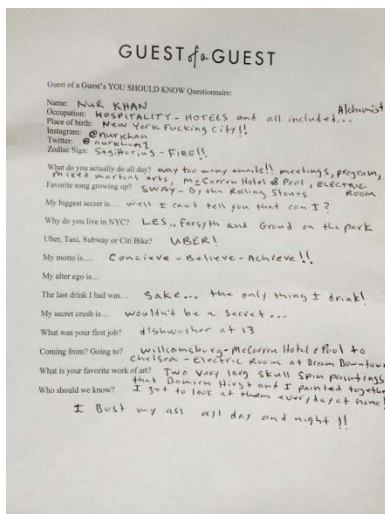 GUEST of a GUEST
Guest of a Guest's YOU SHOULD KNOW Questionnaire:
Alchemist
Name: NUR KHAN
Occupation: HOSPITALITY - HOTELS and all included...
Place of birth: New York Fucking City!!
Instagram: @nurkhan
Twitter: @nurkhan1
Zodiac Sign: Sagittarius - FIRE!!
What do you actually do all day? way too many emails!! meetings, program,
mixed martial arts, McCarren Hotel & Pool, ELECTRIC
ROOM
Favorite song growing up? SWAY - By the Rolling Stones
My biggest secret is.... Well I can't tell you that can I?
Why do you live in NYC? LES.. Forsyth and Grand on the park
Uber, Taxi, Subway or Citi Bike? UBER!
My motto is.... Concieve - Believe - Achieve!!
My alter ego is...
The last drink I had was... Sake... the only thing I drink!
My secret crush is... wouldn't be a secret...
What was your first job? dishwasher at 13
Coming from? Going to? Williamsburg - McCarren Hotel & Pool to
Chelsea - Electric Room at Dream Downtown
What is your favorite work of art? Two very larg skull spin paintings
that Damien Hirst and I painted together
Who should we know? I get to look at them everyday at home!
I Bust my ass all day and night!!